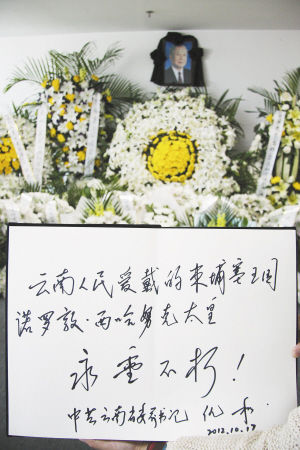 云南人民爱戴的柬埔寨王国
诺罗敦·西哈努克太皇
永垂不朽！
中共云南省委副书记 仇和
2012.10.17